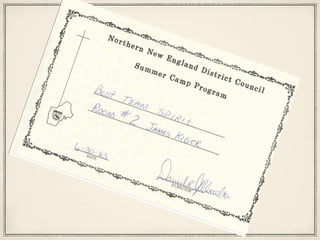 Northern New England District Council
Summer Camp Program
Best Team Spirit
Room # 2 James Kiger
6-30-83
DATE